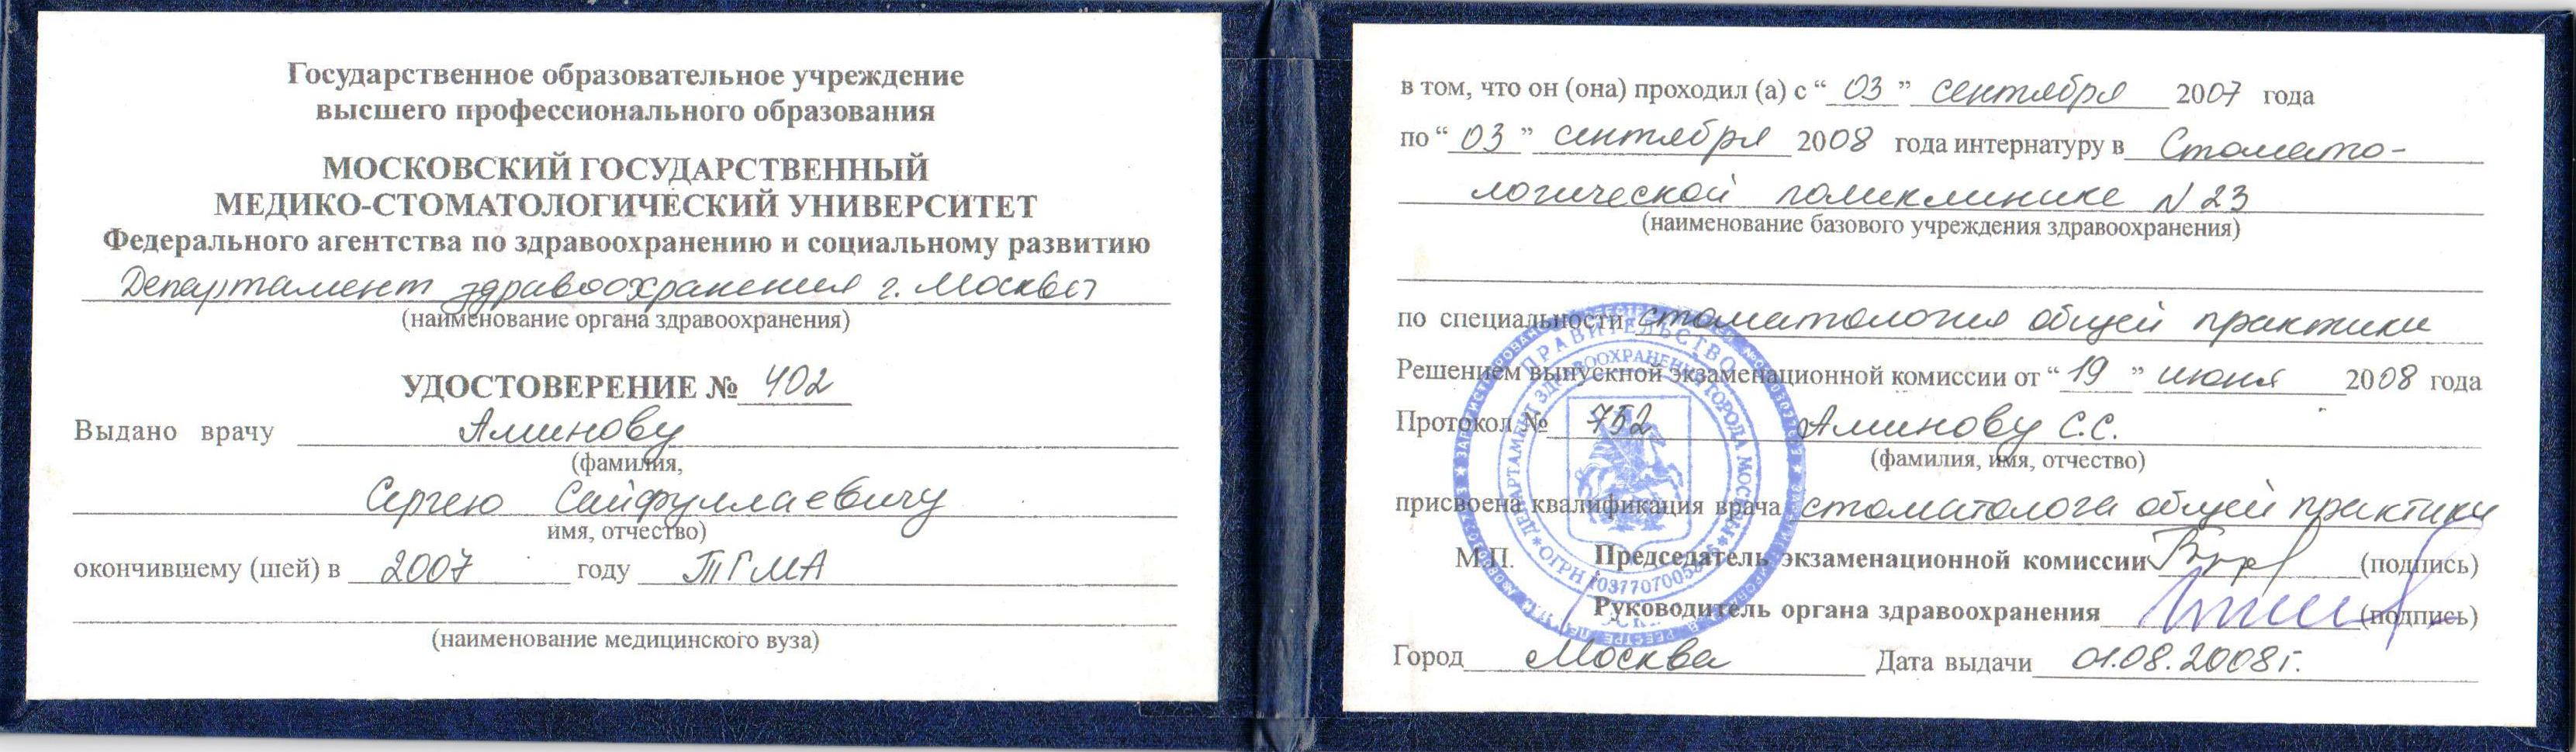 Государственное образовательное учреждение
высшего профессионального образования
МОСКОВСКИЙ ГОСУДАРСТВЕННЫЙ
МЕДИКО-СТОМАТОЛОГИЧЕСКИЙ УНИВЕРСИТЕТ
Федерального агентства по здравоохранению и социальному развитию
Департамент здравоохранения г. Москвы
(наименование органа здравоохранения)
УДОСТОВЕРЕНИЕ № 402
Выдано врачу Аминову
(фамилия,
Сергею Сайфуллаевичу
имя, отчество)
окончившему (шей) в 2007 году ТГМА
(наименование медицинского вуза)
в том, что он (она) проходил (а) с “03” сентября 2007 года
по “03” сентября 2008 года интернатуру в Стомато-
логической поликлинике N 23
(наименование базового учреждения здравоохранения)
по специальности стоматология общей практики
Решением выпускной экзаменационной комиссии от “19” июня 2008 года
Протокол № 752 Аминову С.С.
(фамилия, имя, отчество)
присвоена квалификация врача стоматолога общей практики
М.П. Председатель экзаменационной комиссии (подпись)
Руководитель органа здравоохранения (подпись)
Город Москва Дата выдачи 01.08.2008г.
ПРАВИТЕЛЬСТВО
ДЕПАРТАМЕНТ ЗДРАВООХРАНЕНИЯ ГОРОДА МОСКВЫ